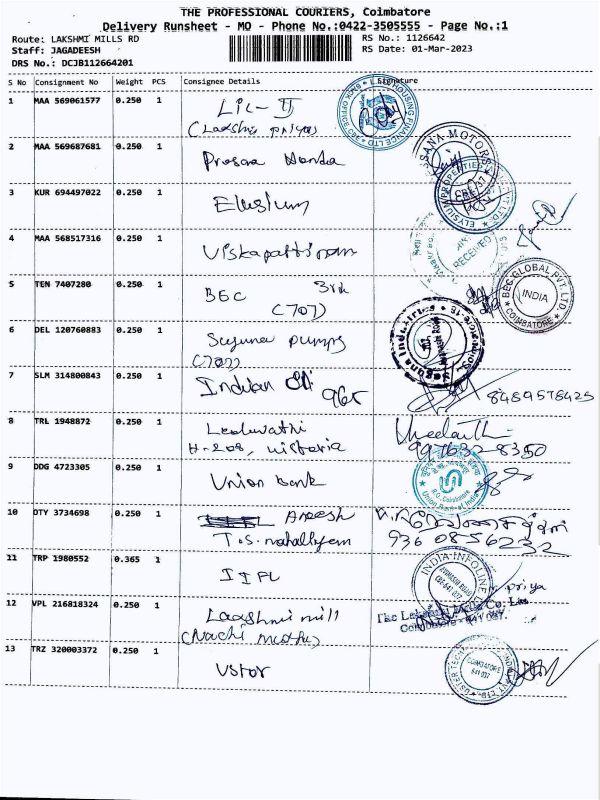 THE PROFESSIONAL COURIERS, Coimbatore
Delivery Runsheet - MO - Phone No.:0422-3505555 - Page No.:1
Route: LAKSHMI MILLS RD
RS No.: 1126642
Staff: JAGADEESH
RS Date: 01-Mar-2023
DRS No.: DCJB112664201
S No Consignment No Weight PCS Consignee Details Signature
1 MAA 569061577 0.250 1 LIC - II
2 MAA 569687681 0.250 1 Honda
3 KUR 694497022 0.250 1 Elysium
4 MAA 568517316 0.250 1
RECEIVED
5 TEN 7407280 0.250 1 BGC 3rd
(707)
BEC GLOBAL PVT. LTD
INDIA
COIMBATORE
6 DEL 120760883 0.250 1 Suguna pumps
(702)
Suguna Industries
7 SLM 314800843 0.250 1 Indian
965
8489578425
8 TRL 1948872 0.250 1 Leelavathi
H-208, Victoria
9976328350
9 DDG 4723305 0.250 1 Union bank
Union Bank of India
10 OTY 3734698 0.250 1
T.S. mahallyam
9360856232
11 TRP 1980552 0.365 1 IIFL
INDIA INFOLINE
priya
12 VPL 216818324 0.250 1 Laxshmi mill
The Lakshmi Mills Co. Ltd
Coimbatore - 641 037.
13 TRZ 320003372 0.250 1 Uster
COIMBATORE
641 037